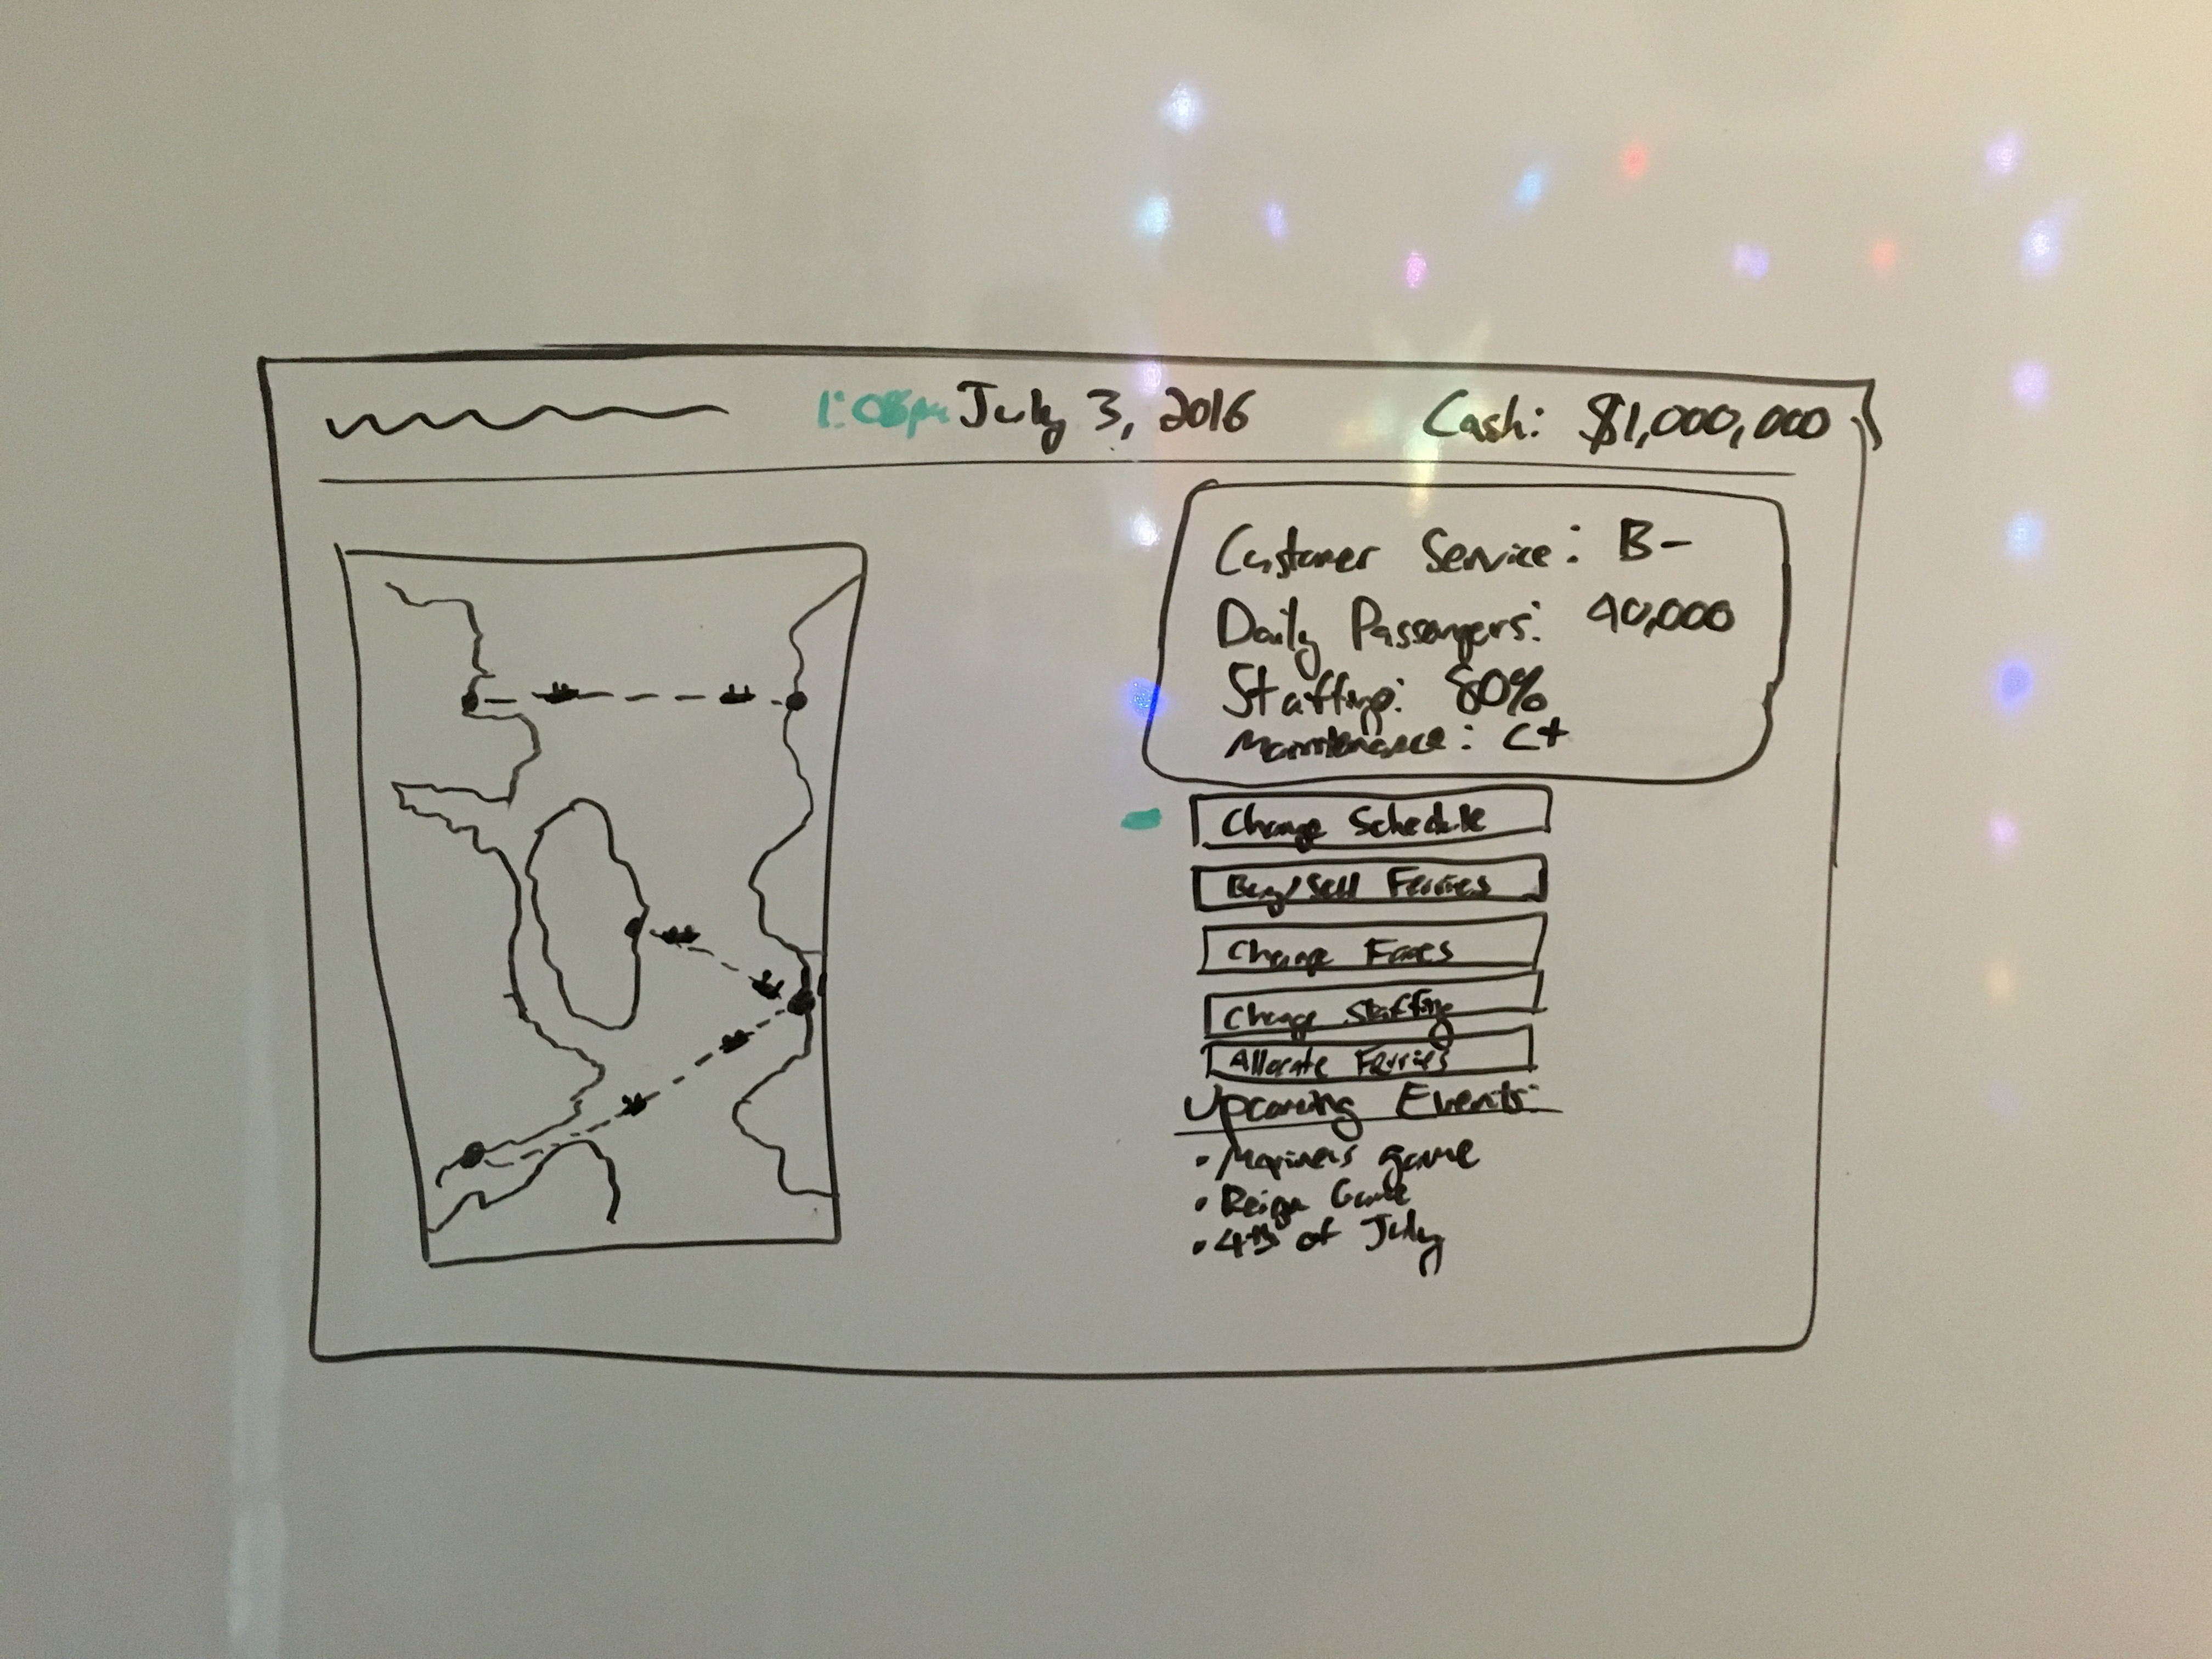 1:08pm July 3, 2016 Cash: $1,000,000
Customer Service: B-
Daily Passengers: 40,000
Staffing: 80%
Maintenance: C+
Change Schedule
Buy/Sell Ferries
Change Fares
Change Staffing
Allocate Ferries
Upcoming Events:
• Mariners game
• Reign Game
• 4th of July